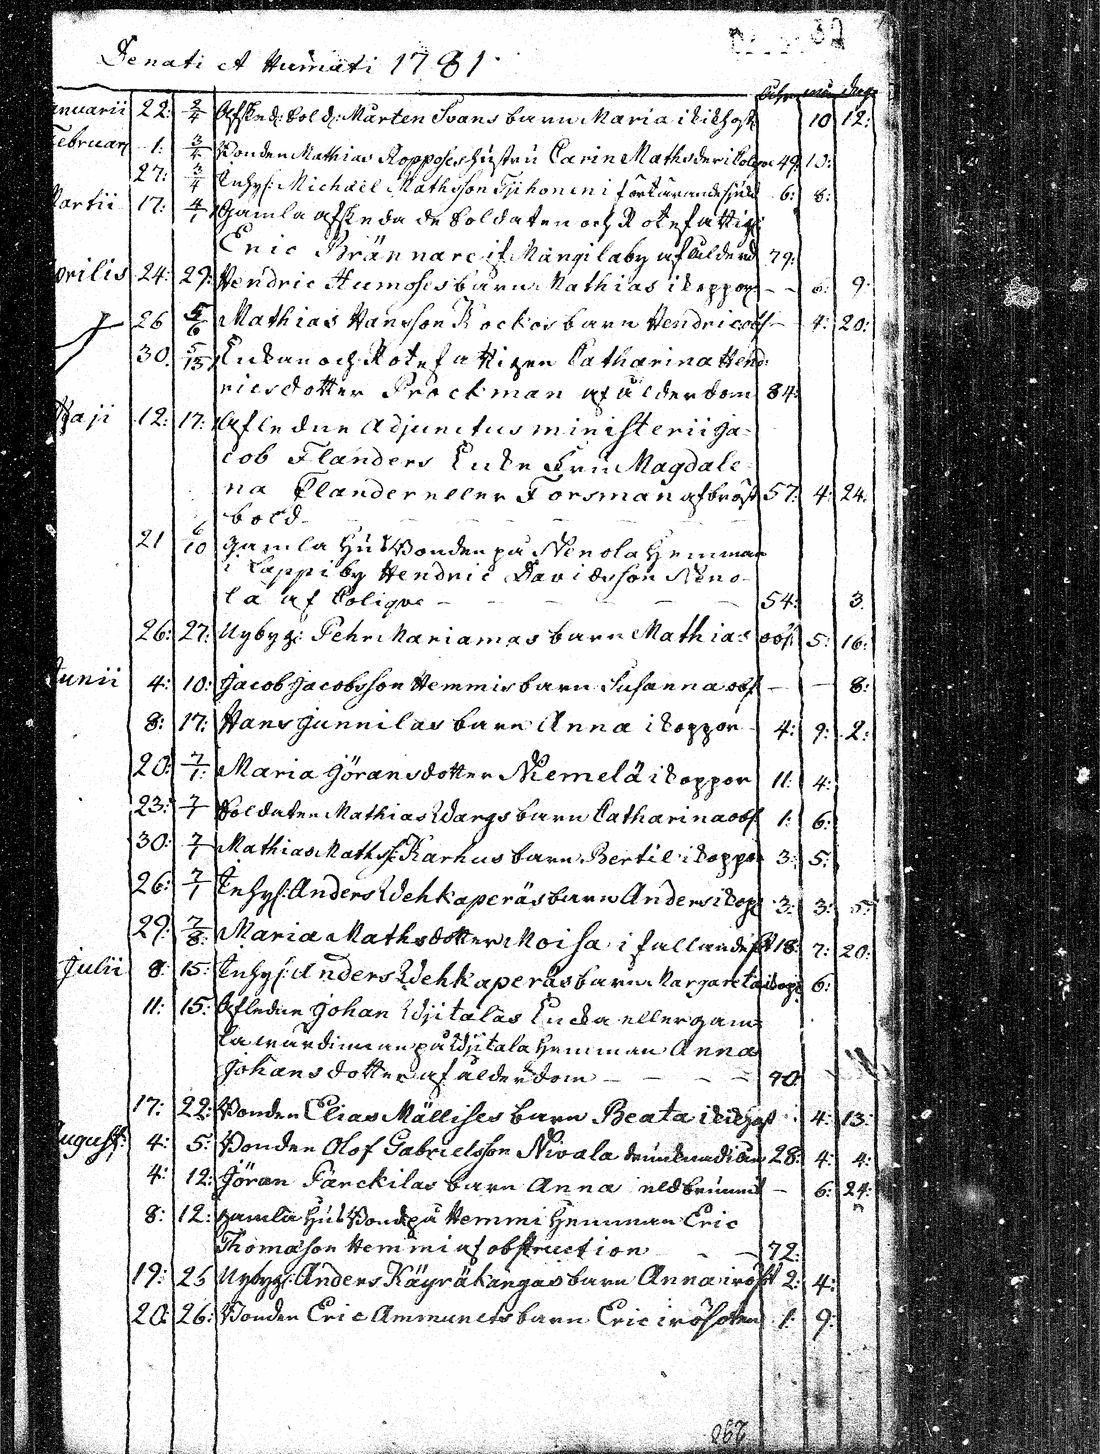 Denati et Humati 1781.
Januarii 22: 2/4 Afsked: Sold: Mårten Svans barn Maria i kikhost 10 12:
Februar 1: 3/4 Bonden Mathias Roppos hustru Carin Mathsder i 49 10:
27: 3/4 Inhys: Michael Mathsson Tjihonen i förtärande sjukd 6: 8:
Martii 17: 4/1 Gamla afskedade Soldaten och Rotefattig
Eric Brännare if Mängilaby af ålderd 79:
Aprilis 24: 29: Hendric Humoses barn Mathias i koppor - - 9:
26 5/6 Mathias Hansson Kockos barn Hendric obs - 4: 20:
30. 5/13 Enkan och Rotefattigen Catharina Hend
ricsdotter Brockman af ålderdom 84:
Maji 12: 17: Afledne Adjunctus ministerii Ja-
cob Flanders Enka Fru Magdale-
na Flander eller Forsman af bröst 57: 4: 24:
böld
21 6/10 Gamla Husbonden på Nenola Hemman
i Lappi by Hendric Davidsson Neno-
la af Colique 54: 3.
26: 27: Nybyg: Pehr Mariamas barn Mathias obs: 5: 16:
Junii 4: 10: Jacob Jacobsson Hemmis barn Susanna obs - - 8:
8: 17: Hans Junnilas barn Anna i koppor 4: 9: 2:
20: 7/1: Maria Göransdotter Niemelä i koppor 11: 4:
23: 7/1 Soldaten Mathias Wargs barn Catharina obs 1: 6:
30: 7/1 Mathias Maths: Karhus barn Bertil i koppor 3: 5:
26: 7/1 Inhys: Anders Wehkaperäs barn Anders i kop 3: 3: 5:
29: 7/8: Maria Mathsdotter Moisa i fallandes 18: 7: 20:
Julii 8: 15: Inhys: Anders Wehkaperäs barn Margareta i kop 6:
11: 15: Afledne Johan Ylitalas Enka eller gam-
la wärdinnan på Ylitala Hemman Anna
Johansdotter af ålderdom 90:
17: 22: Bonden Elias Mällises barn Beata i kikhost 4: 13:
August: 4: 5: Bonden Olof Gabrielsson Nivala drunknad i 28: 4: 4:
4: 12: Jöran Färckilas barn Anna eldbrunnit - 6: 24:
8: 12: Gamla Husbond på Hemmi Hemman Eric
Thomasson Hemmi af obstruction 72:
19: 25 Nybyg: Anders Käyräkangas barn Anna i rös 2: 4:
20: 26: Bonden Eric Ammuncts barn Eric i rösoten 1: 9: